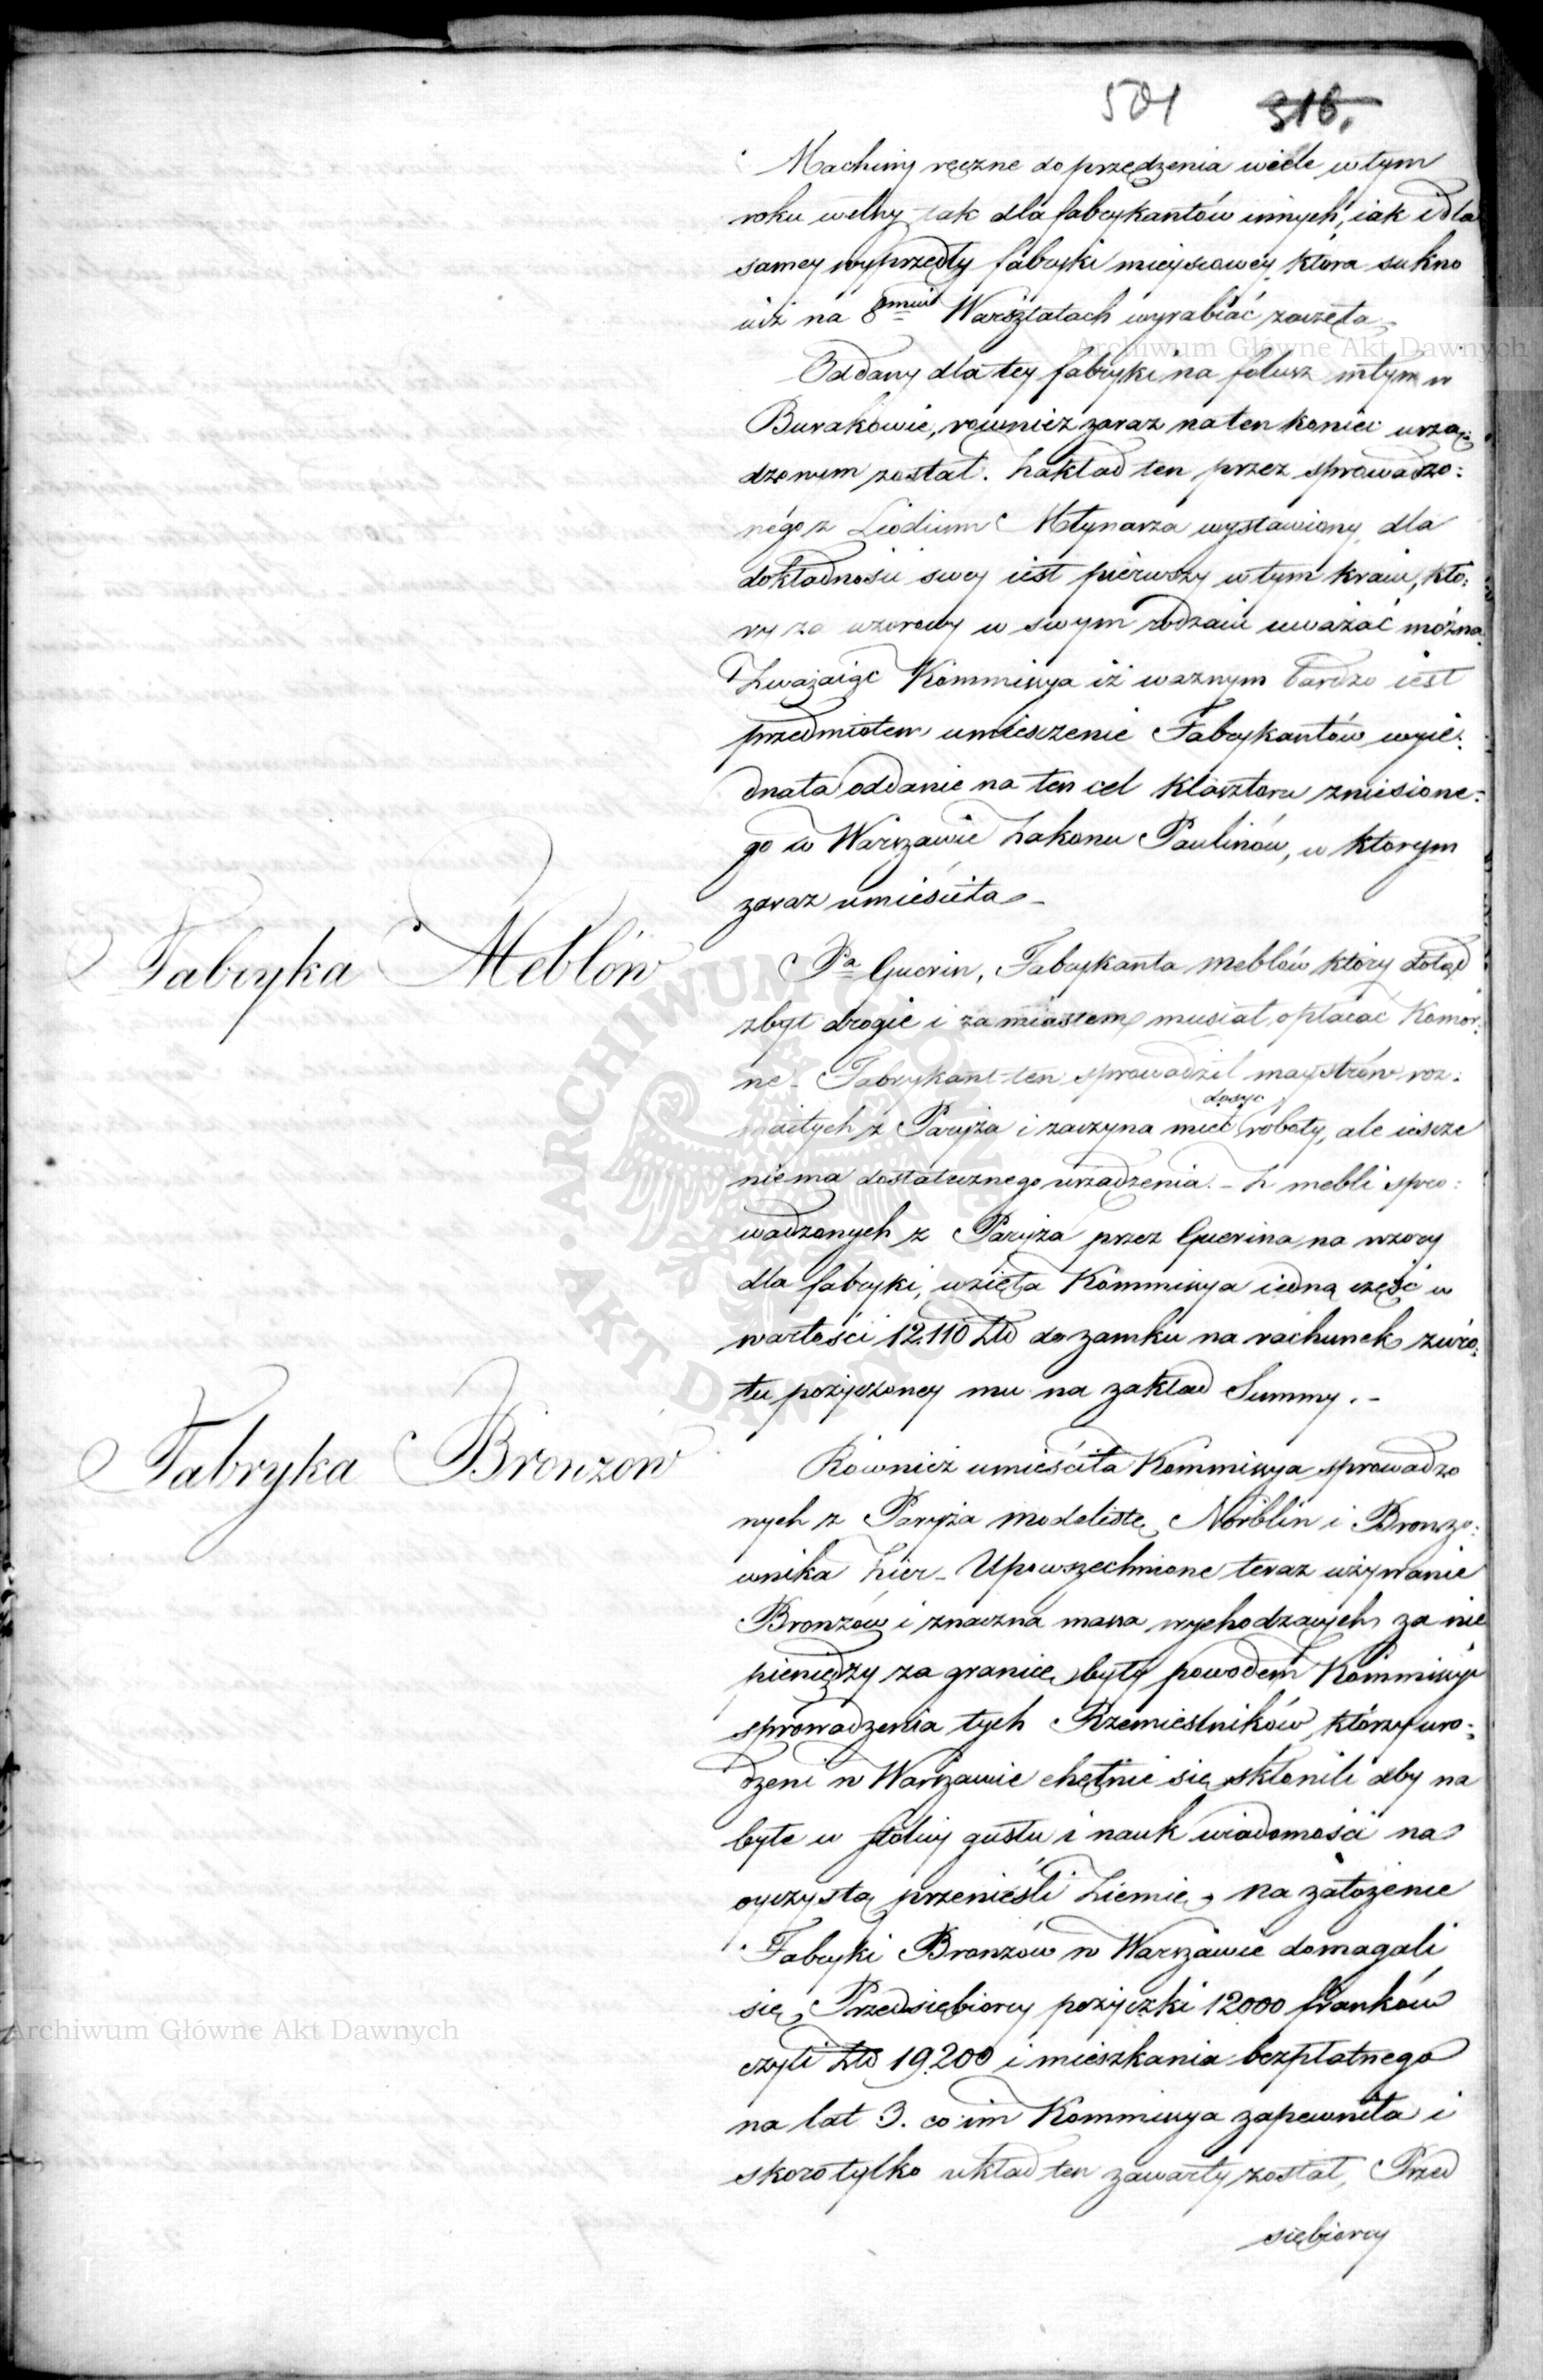 501 316.
Machiny ręczne do przędzenia wiele w tym
roku wełny tak dla fabrykantów innych, iak i dla
samey wyprzędły fabryki mieyscowey, która sukno
iuż na 8miu Warsztatach wyrabiać zaczęła
Archiwum Główne Akt Dawnych
Oddany dla tey fabryki na folusz młyn w
Burakowie, rownież zaraz na ten koniec urzą:
dzonym został. Zakład ten przez sprowadzo:
nego z Leodium Młynarza wystawiony, dla
dokładności swey iest pierwszy w tym kraiu, któ:
ry za wzorowy w swym rodzaiu uważać można.
Zważaiąc Kommissya iż ważnym bardzo iest
przedmiotem umieszczenie Fabrykantów wyie:
dnała oddanie na ten cel klasztoru zniesione:
go w Warszawie Zakonu Paulinów, w którym
zaraz umieściła
Fabryka Meblów
Pa Guerin, Fabrykanta meblów który dotąd
zbyt drogie i za miastem musiał opłacać Komor:
ne - Fabrykant ten sprowadził maystrów roz:
maitych z Paryża i zaczyna mieć dosyć roboty, ale ieszcze
niema dostatecznego urządzenia. - Z mebli spro:
wadzonych z Paryża przez Guerina na wzory
dla fabryki, wzięła Kommissya iedną część w
wartości 12.110 Złł do zamku na rachunek zwro:
tu pożyczoney mu na zakład Summy. -
Fabryka Bronzów
Rownież umieściła Kommissya sprowadzo
nych z Paryża modelistę Norblin i Bronzo:
wnika Zier - Upowszechnione teraz używanie
Bronzów i znaczna massa wychodzących za nie
pieniędzy za granicę były powodem Kommissyi
sprowadzenia tych Rzemieślników, którzy uro:
dzeni w Warszawie chętnie się skłonili aby na
byte w stolicy gustu i nauk wiadomości na
oyczystą przenieśli Ziemię, na założenie
Fabryki Bronzów w Warszawie domagali
się Przedsiębiorcy pożyczki 12000 franków
Archiwum Główne Akt Dawnych
czyli Złł 19.200 i mieszkania bezpłatnego
na lat 3. co im Kommissya zapewniła i
skoro tylko układ ten zawarty został, Przed
siębiorcy
ARCHIWUM GŁÓWNE AKT DAWNYCH